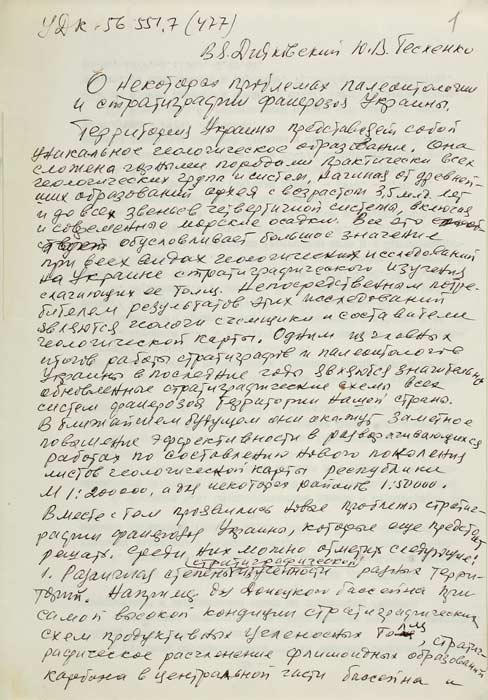 УДК - 56 551.7 (477) 1
В.Я. Дидковский Ю.В. Тесленко
О некоторых проблемах палеонтологии
и стратиграфии фанерозоя Украины.
Территория Украины представляет собой
уникальное геологическое образование. Она
сложена горными породами практически всех
геологических групп и систем, начиная от древней-
ших образований архея с возрастом 3.5 млрд лет
и до всех звеньев четвертичной системы, включая
и современные морские осадки. Все это
обусловливает большое значение
при всех видах геологических исследований
на Украине стратиграфического изучения
слагающих ее толщ. Непосредственным потре-
бителем результатов этих исследований
являются геологи съемщики и составители
геологической карты. Одним из главных
итогов работы стратиграфов и палеонтологов
Украины в последние годы являются значительно
обновленные стратиграфические схемы всех
систем фанерозоя территории нашей страны.
В ближайшем будущем они окажут заметное
повышение эффективности в разворачивающихся
работах по составлению нового поколения
листов геологической карты республики
М 1:200000, а для некоторых районов 1:50000.
Вместе с тем проявились новые проблемы страти-
графии фанерозоя Украины, которые еще предстоит
решать. Среди них можно отметить следующие:
1. Различная степень стратиграфической изученности разных терри-
торий. Например для Донецкого бассейна при
самой высокой кондиции стратиграфических
схем продуктивных угленосных толщ, страти-
графическое расчленение флишоидных образований
карбона в центральной части бассейна и